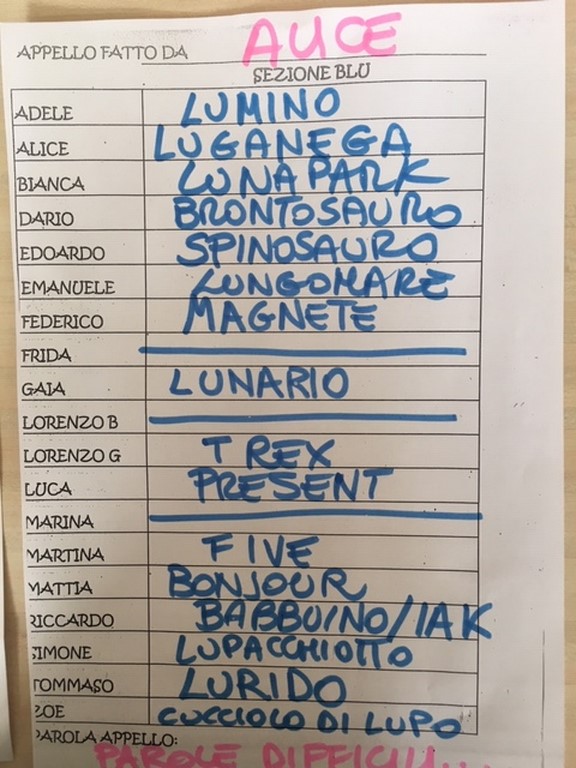 APPELLO FATTO DA ALICE
SEZIONE BLU
ADELE LUMINO
ALICE LUGANEGA
BIANCA LUNA PARK
DARIO BRONTOSAURO
EDOARDO SPINOSAURO
EMANUELE LUNGOMARE
FEDERICO MAGNETE
FRIDA
GAIA LUNARIO
LORENZO B
LORENZO G T REX
LUCA PRESENT
MARINA
MARTINA FIVE
MATTIA BONJOUR
RICCARDO BABBUINO/IAK
SIMONE LUPACCHIOTTO
TOMMASO LURIDO
ZOE CUCCIOLO DI LUPO
PAROLA APPELLO:
PAROLE DIFFICILI...